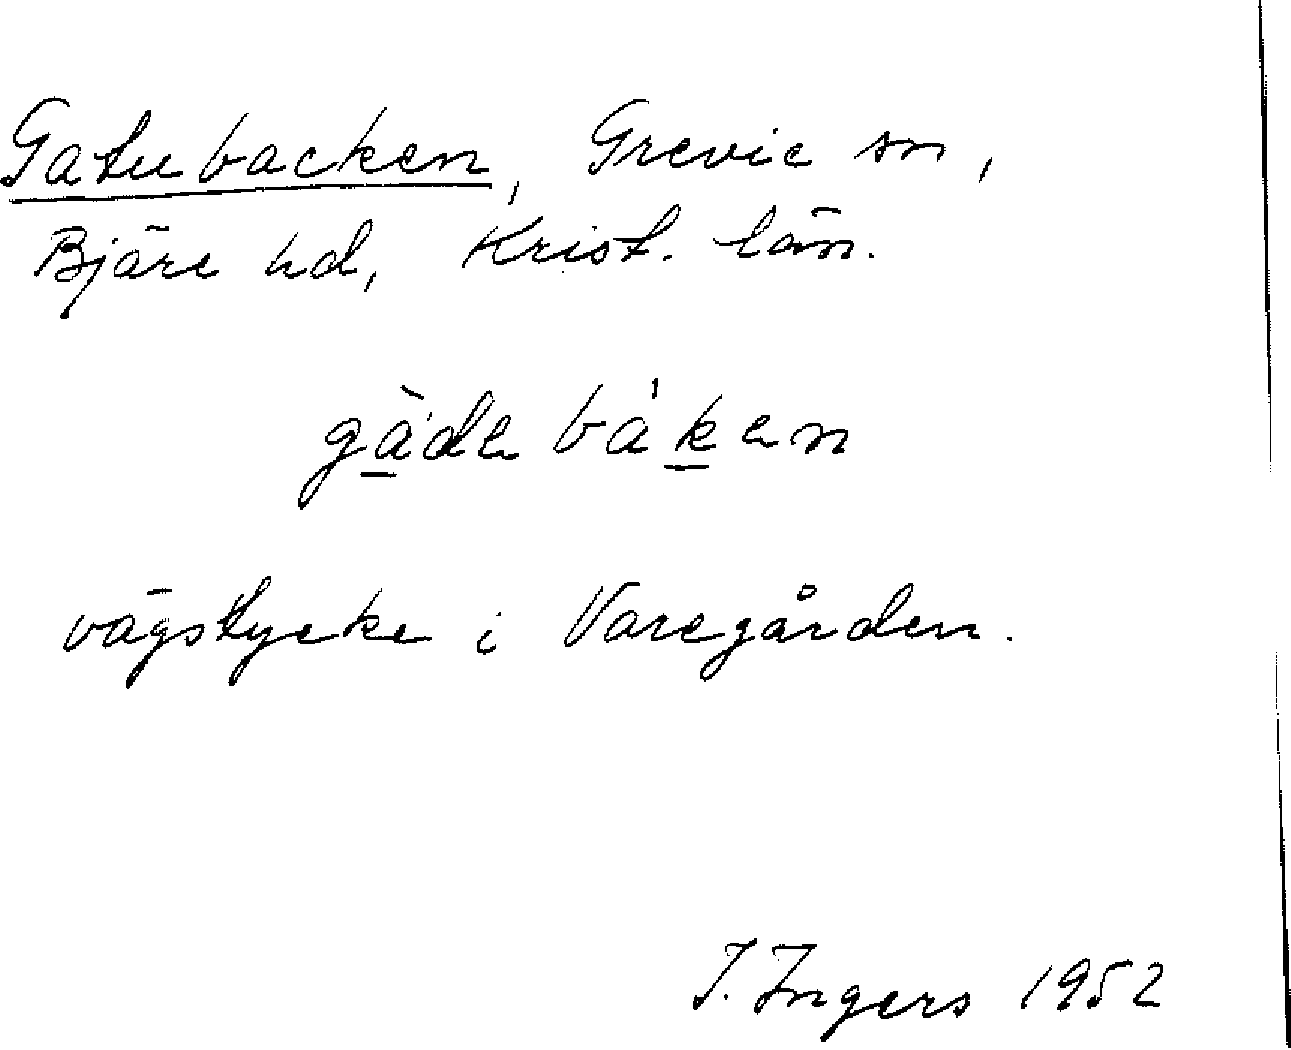 Gatubacken, Grevie sn,
Bjäre hd, Krist. län.
gàde báken
vägstycke i Varegården.
I. Ingers 1952